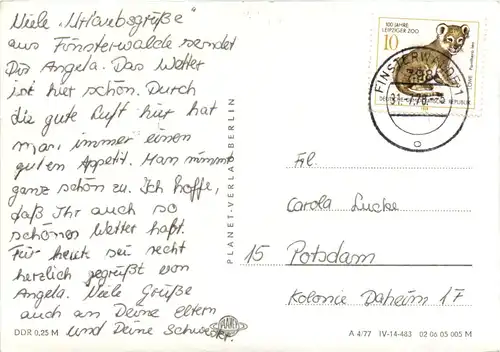 Viele "Urlaubsgrüße"
aus Finsterwalde sendet
Dir Angela. Das Wetter
ist hier schön. Durch
die gute Luft hier hat
man immer einen
guten Appetit. Man nimmt
ganz schön zu. Ich hoffe,
daß Ihr auch so
schönes Wetter habt.
Für heute sei recht
herzlich gegrüßt von
Angela. Viele Grüße
auch an Deine Eltern
und Deine Schwester.
DDR 0,25 M
PLANET-VERLAG BERLIN
PLANET
100 JAHRE
LEIPZIGER ZOO
10
LÖWE
DEUTSCHE DEMOKRATISCHE REPUBLIK
FINSTERWALDE 1
798
Frl.
Carola Lucke
15 Potsdam
Kolonie Daheim 17
A 4/77 IV-14-483 02 06 05 005 M